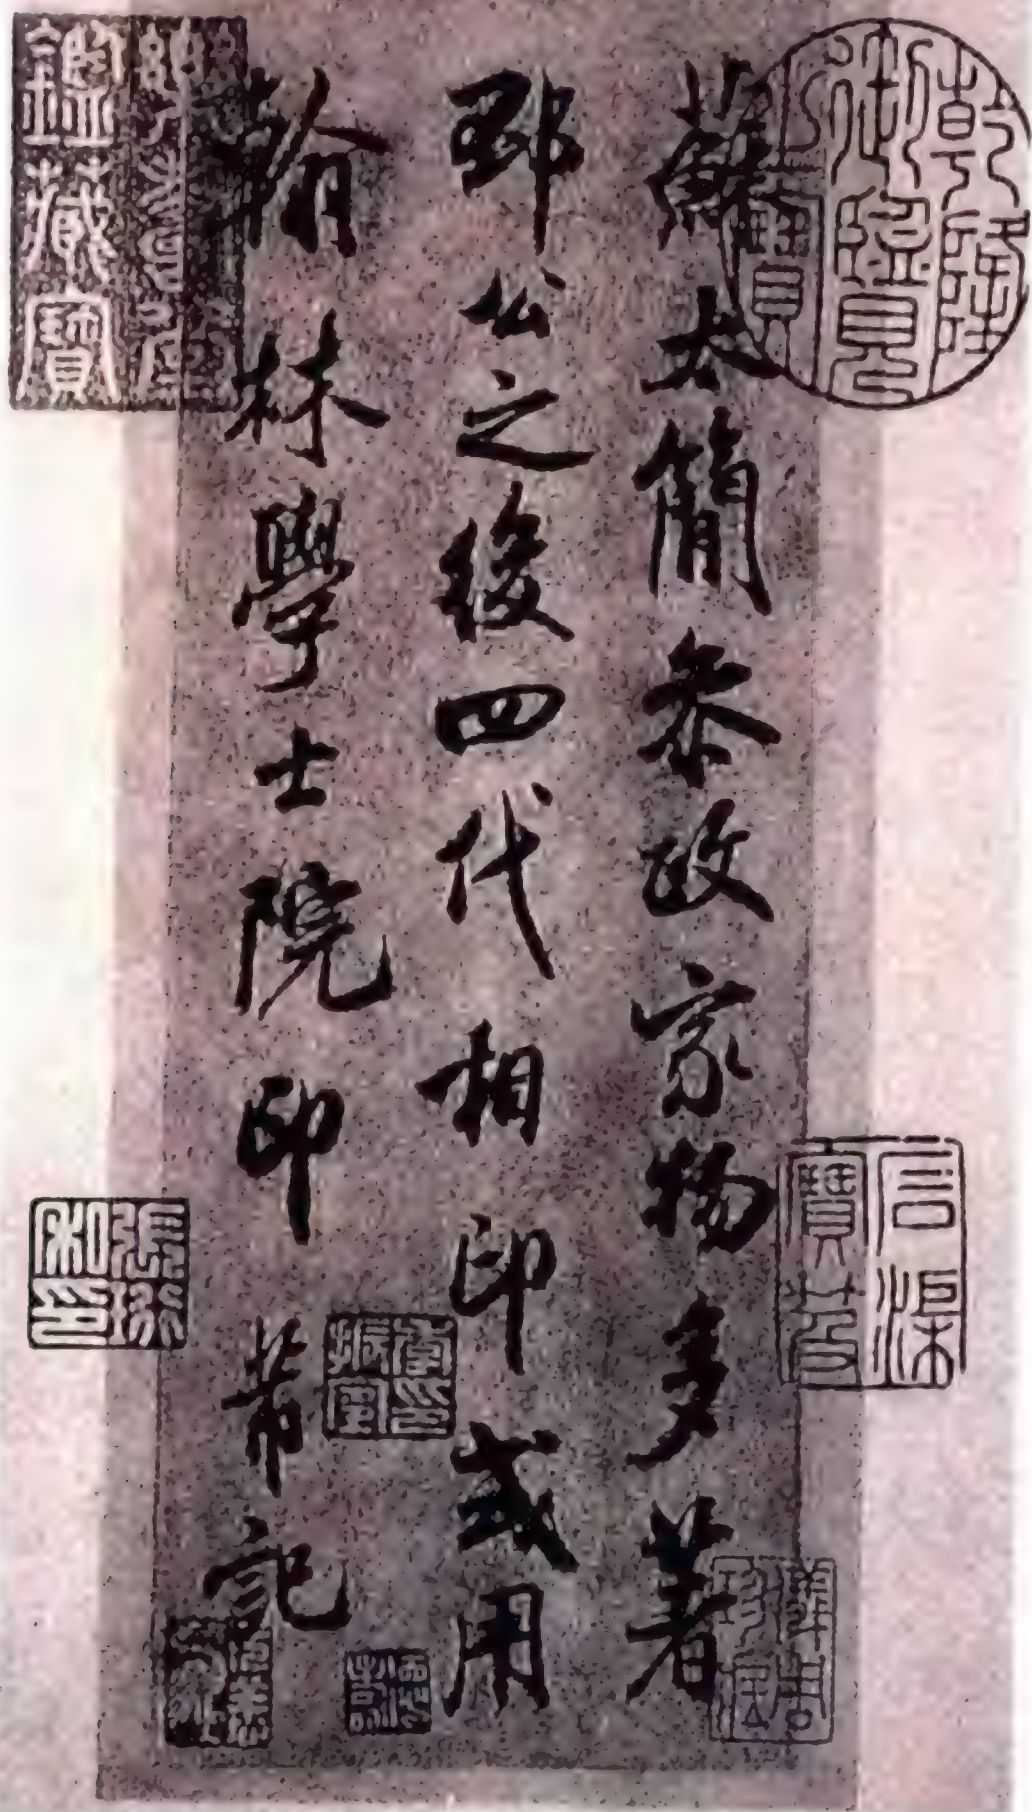 蘇太簡參政家物多著
邳公之後四代相印或用
翰林學士院印芾記
乾隆御覽之寶
石渠寶笈
鑑藏寶
張珩私印